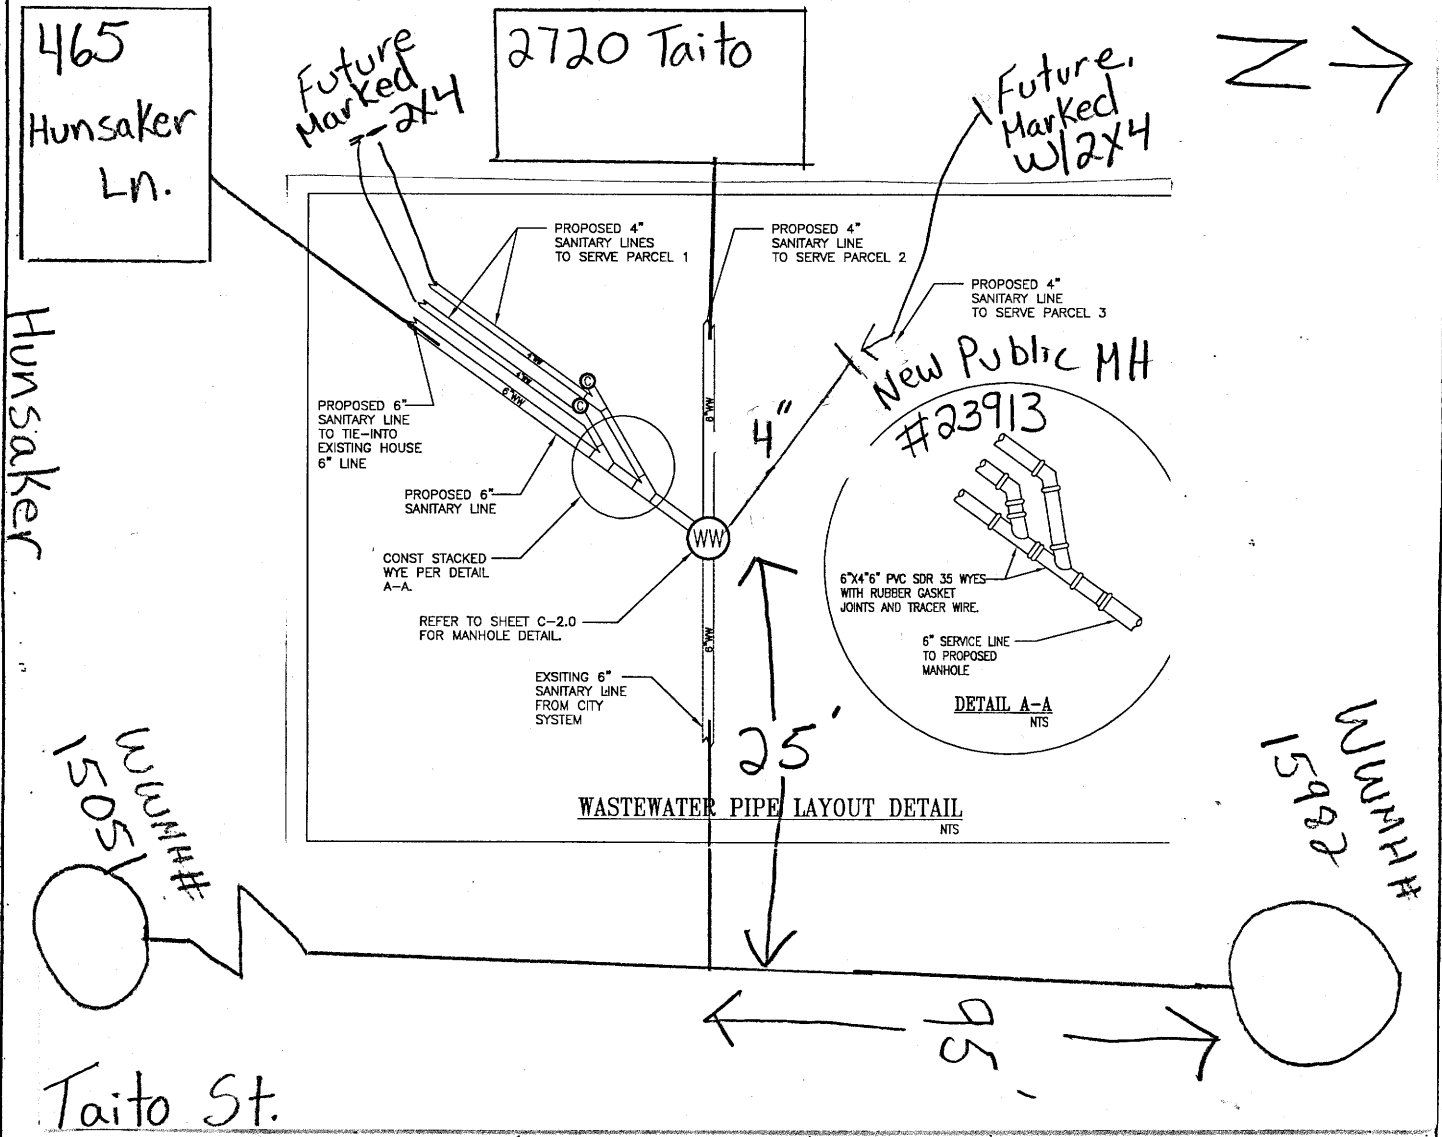 465
Hunsaker
Ln.
Future
Marked
2x4
2720 Taito
Future.
Marked
W/2x4
Z
PROPOSED 4"
SANITARY LINES
TO SERVE PARCEL 1
PROPOSED 4"
SANITARY LINE
TO SERVE PARCEL 2
PROPOSED 4"
SANITARY LINE
TO SERVE PARCEL 3
New Public MH
#23913
Hunsaker
4"WW
4"WW
6"WW
C
C
6"WW
4"
PROPOSED 6"
SANITARY LINE
TO TIE-INTO
EXISTING HOUSE
6" LINE
PROPOSED 6"
SANITARY LINE
CONST STACKED
WYE PER DETAIL
A-A.
REFER TO SHEET C-2.0
FOR MANHOLE DETAIL.
WW
6"WW
EXSITING 6"
SANITARY LINE
FROM CITY
SYSTEM
6"X4"6" PVC SDR 35 WYES
WITH RUBBER GASKET
JOINTS AND TRACER WIRE.
6" SERVICE LINE
TO PROPOSED
MANHOLE
DETAIL A-A
NTS
25'
WASTEWATER PIPE LAYOUT DETAIL
NTS
WWMH#
15051
WWMH#
15982
95'
Taito St.